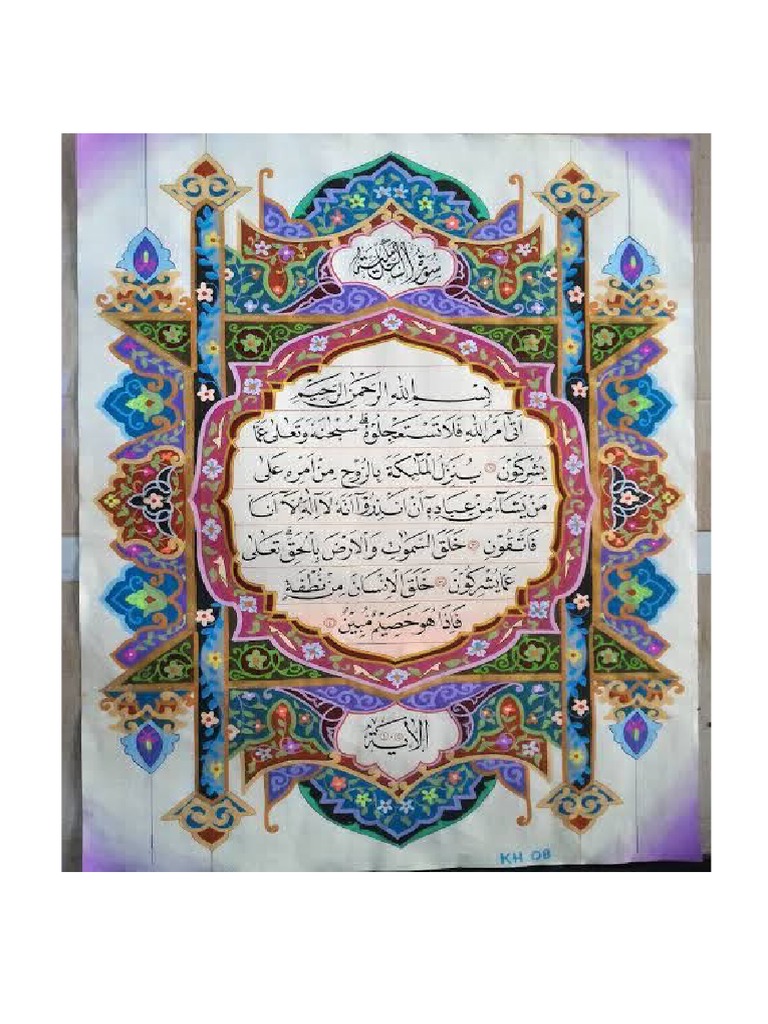 سورة
بسم الله الرحمن الرحيم
اتى امر الله فلا تستعجلوه سبحنه وتعالى عما
يشركون ۝ ينزل الملىكة بالروح من امره على
من يشاء من عباده ان انذروا انه لا اله الا انا
فاتقون ۝ خلق السموت والارض بالحق تعالى
عما يشركون ۝ خلق الانسان من نطفة
فاذا هو خصيم مبين ۝
الاية
KH 08